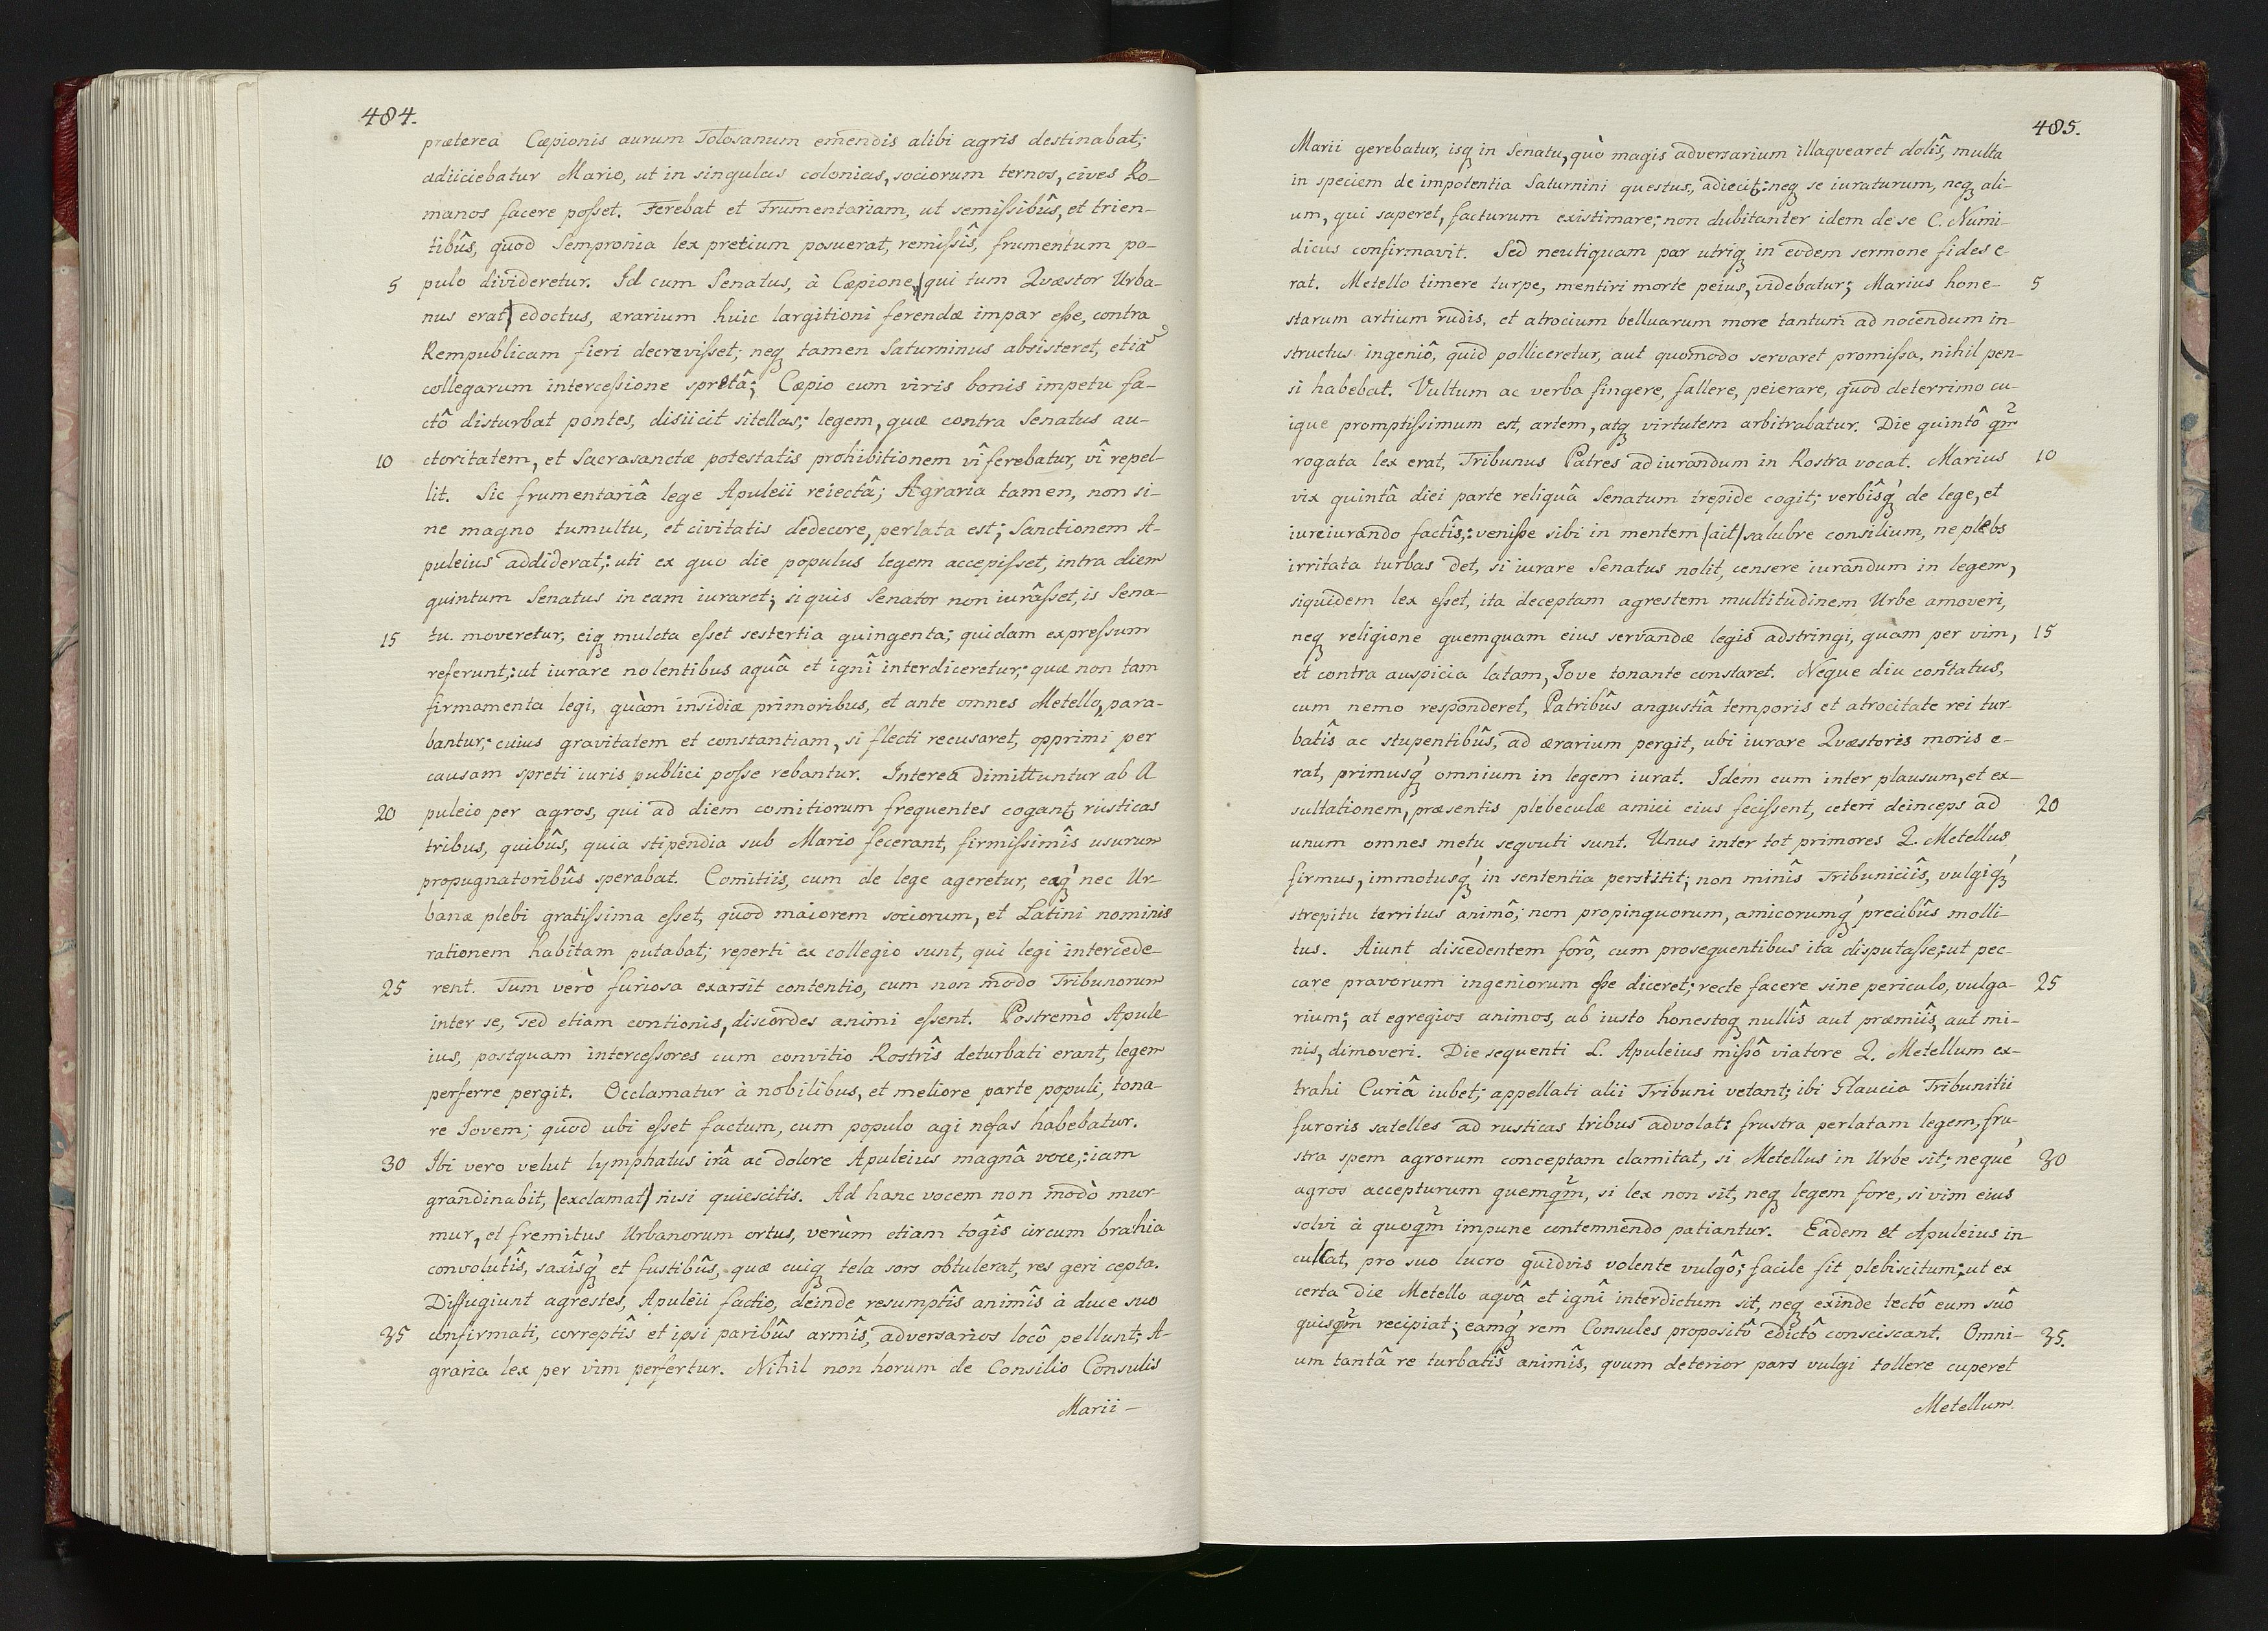 484.
præterea Cæpionis aurum Tolosanum emendis alibi agris destinabat;
adiiciebatur Mario, ut in singulas colonias, sociorum ternos, cives Ro-
manos facere posset. Ferebat et Frumentariam, ut semissibûs, et trien-
tibûs, quod Sempronia lex pretium posuerat, remissîs, frumentum po-
5 pulo divideretur. Id cum Senatus, à Cæpione, (qui tum Quæstor Urba-
nus erat) edoctus, ærarium huic largitioni ferendæ impar esse, contra
Rempublicam fieri decrevisset; neq tamen Saturninus absisteret, etiã
collegarum intercessione spretâ; Cæpio cum viris bonis impetu fa-
ctô disturbat pontes, disiicit sitellas; legem, quæ contra Senatus au-
10 ctoritatem, et Sacrasanctæ potestatis prohibitionem vî ferebatur, vî repel-
lit. Sic frumentariâ lege Apuleii reiectâ; Agraria tamen, non si-
ne magno tumultu, et civitatis dedecore, perlata est; Sanctionem A-
puleius addiderat,: uti ex quo die populus legem accepisset, intra diem
quintum Senatus in eam iuraret; si quis Senator non iurâsset, is Sena-
15 tu moveretur, eiq mulcta esset sestertia quingenta; quidam expressum
referunt,: ut iurare nolentibus aquâ et ignî interdiceretur; quæ non tam
firmamenta legi, quàm insidiæ primoribus, et ante omnes Metello, para-
bantur; cuius gravitatem et constantiam, si flecti recusaret, opprimi per
causam spreti iuris publici posse rebantur. Interea dimittuntur ab A
20 puleio per agros, qui ad diem comitiorum frequentes cogant rusticas
tribus, quibûs, quia stipendia sub Mario fecerant, firmissimîs usurum
propugnatoribûs sperabat. Comitiis, cum de lege ageretur, eaq́ nec Ur-
banæ plebi gratissima esset, quod maiorem sociorum, et Latini nominis
rationem habitam putabat; reperti ex collegio sunt, qui legi intercede-
25 rent. Tum verò furiosa exarsit contentio, cum non modo Tribunorum
inter se, sed etiam contionis, discordes animi essent. Postremò Apule-
ius, postquam intercessores cum convitio Rostrîs deturbati erant, legem
perferre pergit. Occlamatur à nobilibus, et meliore parte populi, tona-
re Iovem; quod ubi esset factum, cum populo agi nefas habebatur.
30 Ibi vero velut lymphatus irâ ac dolore Apuleius magnâ voce,: iam
grandinabit, (exclamat) nisi quiescitis. Ad hanc vocem non modò mur-
mur, et fremitus Urbanorum ortus, verùm etiam togîs circum brachia
convolutîs, saxîsq́ et fustibûs, quæ cuiq tela sors obtulerat, res geri cepta.
Diffugiunt agrestes, Apuleii factio, deinde resumptîs animîs à duce suo
35 confirmati, correptîs et ipsi paribûs armîs, adversarios locô pellunt; A-
graria lex per vim perfertur. Nihil non horum de Consilio Consulis
Marii-
485.
Marii gerebatur, isq in Senatu, quò magis adversarium illaquearet dolîs, multa
in speciem de impotentia Saturnini questus, adiecit,: neq se iuraturum, neq ali-
um, qui saperet, facturum existimare; non dubitanter idem de se C. Numi-
dicus confirmavit. Sed neutiquam par utriq in eodem sermone fides e-
rat. Metello timere turpe, mentiri morte peius, videbatur; Marius hone- 5
starum artium rudis, et atrocium belluarum more tantum ad nocendum in-
structus ingeniô, quid polliceretur, aut quomodo servaret promissa, nihil pen-
si habebat. Vultum ac verba fingere, fallere, peierare, quod deterrimo cu-
ique promptissimum est, artem, atq virtutem arbitrabatur. Die quintô qm
rogata lex erat, Tribunus Patres ad iurandum in Rostra vocat. Marius 10
vix quintâ diei parte reliquâ Senatum trepide cogit; verbîsq́ de lege, et
iureiurando factîs,: venisse sibi in mentem (ait) salubre consilium, ne plebs
irritata turbas det, si iurare Senatus nolit, censere iurandum in legem,
siquidem lex esset, ita deceptam agrestem multitudinem Urbe amoveri,
neq religione quemquam eius servandæ legis adstringi, quam per vim, 15
et contra auspicia latam, Iove tonante constaret. Neque diu contatus,
cum nemo responderet, Patribûs angustiâ temporis et atrocitate rei tur-
batîs ac stupentibûs, ad ærarium pergit, ubi iurare Quæstoris moris e-
rat, primusq́ omnium in legem iurat. Idem cum inter plausum, et ex-
sultationem, præsentis plebeculæ amici eius fecissent, ceteri deinceps ad 20
unum omnes metu sequuti sunt. Unus inter tot primores Q. Metellus
firmus, immotusq́ in sententia perstitit; non minîs Tribuniciîs, vulgiq́
strepitu territus animô; non propinquorum, amicorumq́ precibûs molli-
tus. Aiunt discedentem forô, cum prosequentibus ita disputasse,: ut pec-
care pravorum ingeniorum esse diceret; recte facere sine periculo, vulga- 25
rium; at egregios animos, ab iusto honestoq nullîs aut præmiîs, aut mi-
nis, dimoveri. Die sequenti L. Apuleius missô viatore Q. Metellum ex-
trahi Curiâ iubet; appellati alii Tribuni vetant; ibi Glaucia Tribunitii
furoris satelles ad rusticas tribus advolat: frustra perlatam legem, fru-
stra spem agrorum conceptam clamitat, si Metellus in Urbe sit; neque 30
agros accepturum quemqm, si lex non sit, neq legem fore, si vim eius
solvi à quoqm impune contemnendo patiantur. Eadem et Apuleius in-
culcat, pro suo lucro quidvis volente vulgô; facile fit plebiscitum,: ut ex
certa die Metello aquâ et ignî interdictum sit, neq exinde tectô eum suô
quisqm recipiat; eamq́ rem Consules propositô edictô consciscant. Omni- 35.
um tantâ re turbatîs animîs, quum deterior pars vulgi tollere cuperet
Metellum